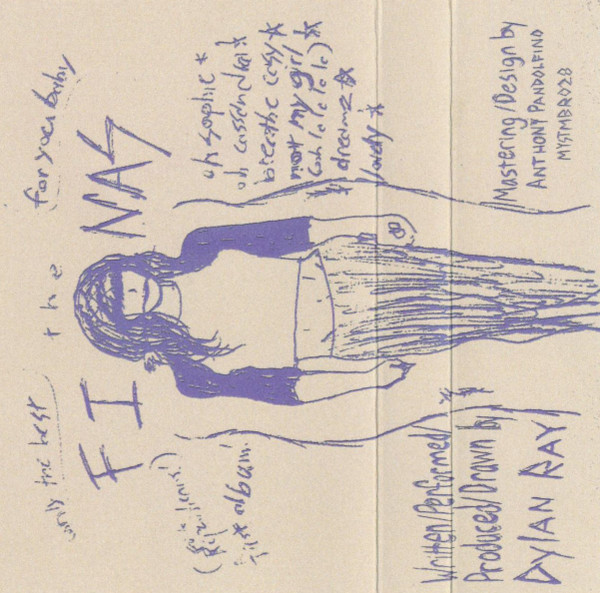 only the best the for your baby
FI NAS
first album
oh sophie *
oh cassandra! *
breathe easy *
my girl
(ooh la la la la) *
dreamz *
Written/Performed/
Produced/Drawn by
DYLAN RAY
Mastering/Design by
ANTHONY PANDOLFINO
MYSTMBR028